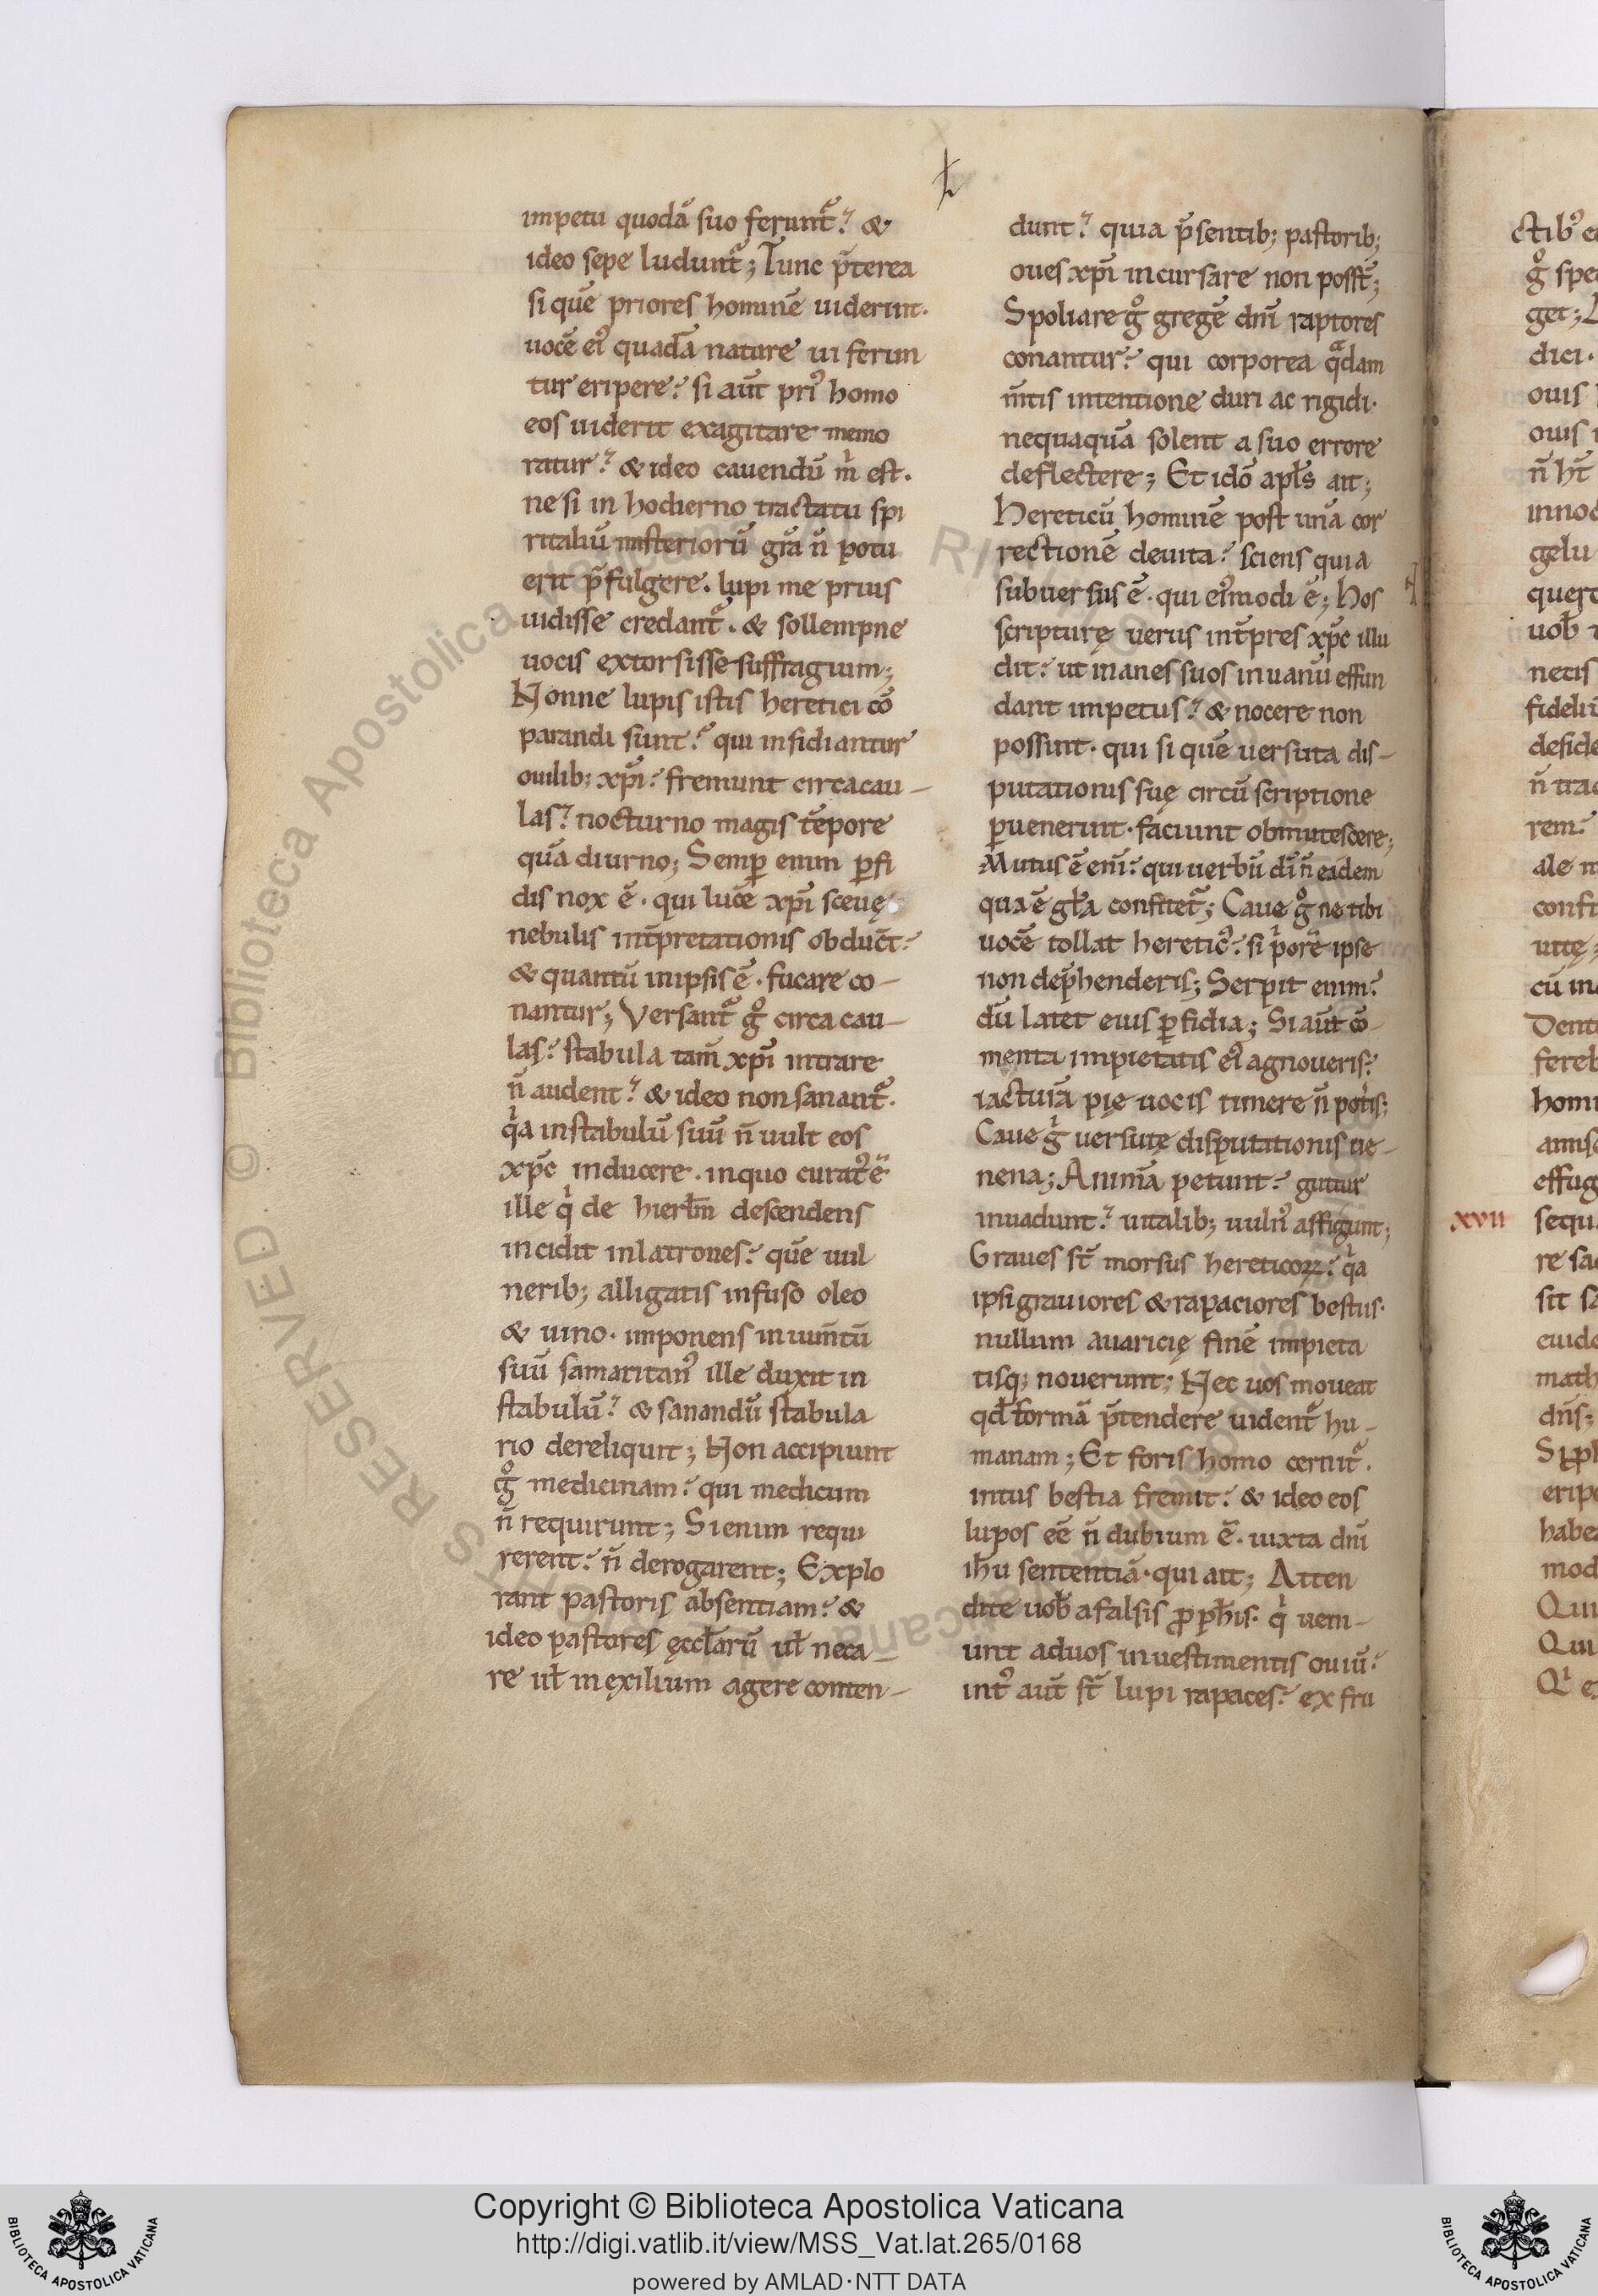 impetu quodā suo ferunt᷑. &
ideo sepe ludunt᷑; Tunc p̄terea
si quē priores hominē uiderint.
uocē eiꝰ quadā nature ui ferun
tur eripere. si aūt priꝰ homo
eos uiderit exagitare memo
ratur. & ideo cauendū m̅ est.
ne si in hodierno tractatu spi
ritaliū misteriorū gr̄a n̄ potu
erit p̄fulgere. lupi me prius
uidisse credant᷑. & sollempne
uocis extorsisse suffragium;
Nonne lupis istis heretici cō
parandi sunt. qui insidiantur
ouilib; xp̄i. fremunt circa cau-
las. nocturno magis tēpore
quā diurno; Semꝑ enim ꝑfi
dis nox ē. qui lucē xp̄i sceuę
nebulis int̄pretationis obduct̄.
& quantū in ipsis ē. fucare co-
nantur; Versant᷑ gͦ circa cau-
las. stabula tam̄ xp̄i intrare
n̄ audent. & ideo non sanant᷑.
qͥa in stabulū suū n̄ uult eos
xp̄c inducere. in quo curatꝰ ē
ille qͥ de hierl̄m descendens
incidit in latrones. quē uul
nerib; alligatis infuso oleo
& uino. imponens in iūmtū
suū samaritanꝰ ille duxit in
stabulū. & sanandū stabula
rio dereliquit; Non accipiunt
gͦ medicinam. qui medicum
n̄ requirunt; Si enim requi
rerent. n̄ derogarent; Explo
rant pastoris absentiam. &
ideo pastores ęccl̄arū ul̄ neca-
re ul̄ in exilium agere conten-
dunt. quia p̄sentib; pastorib;
oues xp̄i incursare non poss̄t;
Spoliare gͦ gregē dn̄i raptores
conantur. qui corporea qᷓdam
m̄tis intentione duri ac rigidi.
nequaquā solent a suo errore
deflectere; Et idō apl̄s ait;
Hereticū hominē post unā cor
rectionē deuita. sciens quia
subuersus ē. qui eiꝰmodi ē; Hos
scripturę uerus int̄pres xp̄c illu
dit. ut inanes suos in uanū effun
dant impetus. & nocere non
possint. qui si quē uersuta dis-
putationis suę circūscriptione
ꝑuenerint. faciunt obmutescere;
Mutus ē eni̅. qui uerbū dī n̄ eadem
qua ē gl̄a confitet᷑; Caue gͦ ne tibi
uocē tollat hereticꝰ. si pͥorē ipse
non dep̄henderis; Serpit enim.
dū latet eius ꝑfidia; Si aūt cō-
menta impietatis eiꝰ agnoueris.
iacturā pię uocis timere n̄ potͥs;
Caue gͥ uersutę disputationis ue-
nena; Animā petunt. guttur
inuadunt. uitalib; uulnꝰ affigunt;
Graues st̄ morsus hereticoꝝ. qͥa
ipsi grauiores & rapaciores bestiis.
nullum auaricię finē impieta
tisq; nouerunt; Nec uos moueat
qd̄ formā p̄tendere uident᷑ hu-
manam; Et foris homo cernit᷑.
intus bestia fremit. & ideo eos
lupos eē n̄ dubium ē. iuxta dn̄i
ih̄u sententiā. qui ait; Atten
dite uob̄ a falsis ꝓph̄is. qͥ ueni-
unt ad uos in uestimentis ouiū.
intꝰ aūt st̄ lupi rapaces. ex fru
xvii
Copyright © Biblioteca Apostolica Vaticana
http://digi.vatlib.it/view/MSS_Vat.lat.265/0168
powered by AMLAD·NTT DATA
BIBLIOTECA APOSTOLICA VATICANA
BIBLIOTECA APOSTOLICA VATICANA